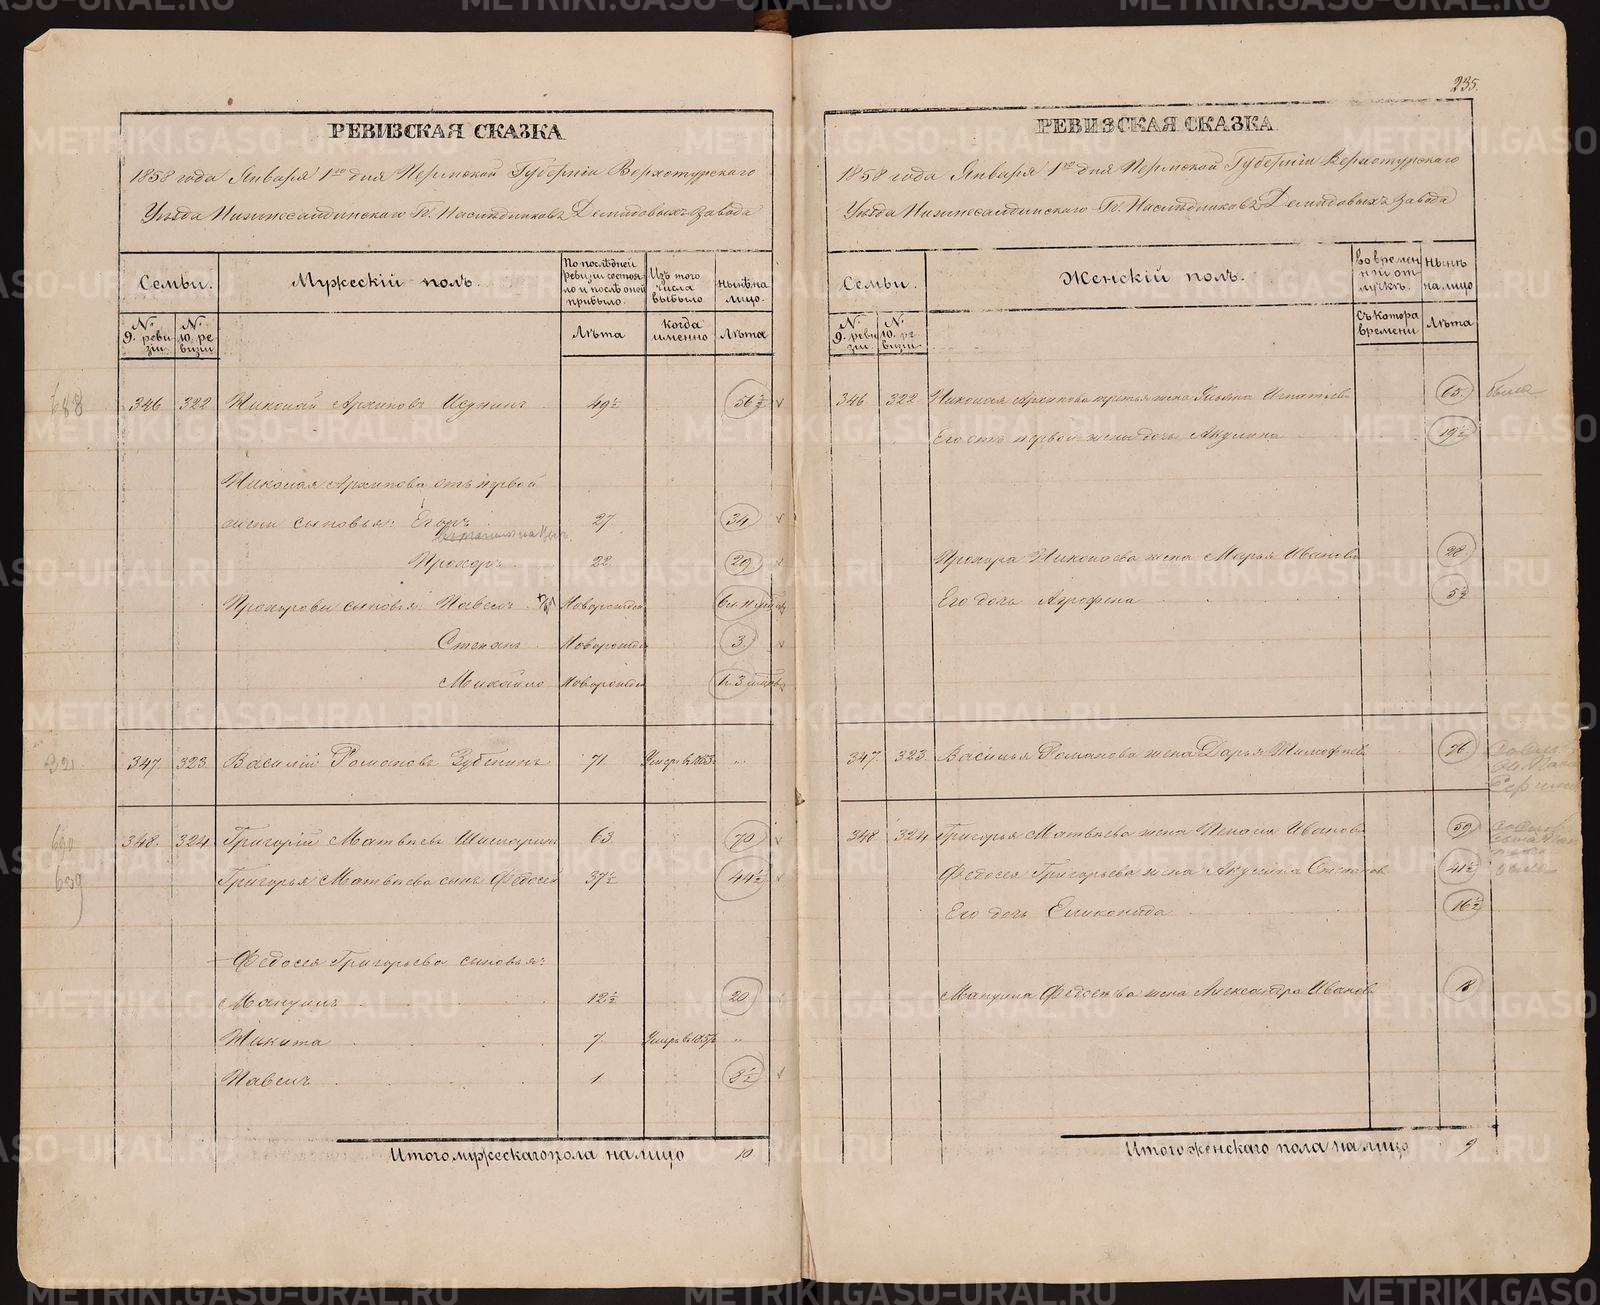 235.
РЕВИЗСКАЯ СКАЗКА
1858 года Января 1го дня Пермской Губерніи Верхотурскаго
Уѣзда Нижнесалдинскаго Гг. Наслѣдниковъ Демидовыхъ завода
Семьи.
Мужескій полъ.
По послѣдней ревизіи состояло и послѣ оной прибыло.
Изъ того числа выбыло
нынѣ на лицо.
№ 9. ревизіи.
№ 10. ревизіи
Лѣта
Когда именно
Лѣта
688
346 322 Николай Архиповъ 49½ 56½
Николая Архипова отъ первой
жены сыновья: Егоръ 27 34
Прохоръ 22 29
Прохоровы сыновья: Павелъ Новорожден
Степанъ Новорожден 3.
Михайло Новорожден
347. 323. Василій Романовъ Зубенинъ 71. Умеръ въ 1853 "
348. 324 Григорій Матвѣевъ 63 70
639
Григорья Матвѣева сынъ Федосей 37½ 44½
Федосея Григорьева сыновья:
Мануилъ 12½ 20
Никита 7. "
Павелъ 1 8½
Итого мужескаго пола на лицо 10.
РЕВИЗСКАЯ СКАЗКА
1858 года Января 1го дня Пермской Губерніи Верхотурскаго
Уѣзда Нижнесалдинскаго Гг. Наслѣдниковъ Демидовыхъ завода
Семьи.
Женскій полъ.
Во временной отлучкѣ.
Нынѣ на лицо
№ 9. ревизіи.
№ 10. ревизіи.
Съ котора времени
Лѣта
346 322 Николая Архипова третья жена Ульяна Игнатьева 65.
Его отъ первой жены дочь Акулина 19½
Прохора Николаева жена Марья Иванова 28
Его дочь Агрофена 5½
347. 323. Василья Романова жена Дарья Тимофеева 76
348. 324 Григорья Матвѣева жена Пелагея Иванова 59
Федосея Григорьева жена Акулина Степанова 41½
Его дочь Еликонида 16½
Мануила Федосѣева жена Александра Иванова 18
Итого женскаго пола на лицо 9